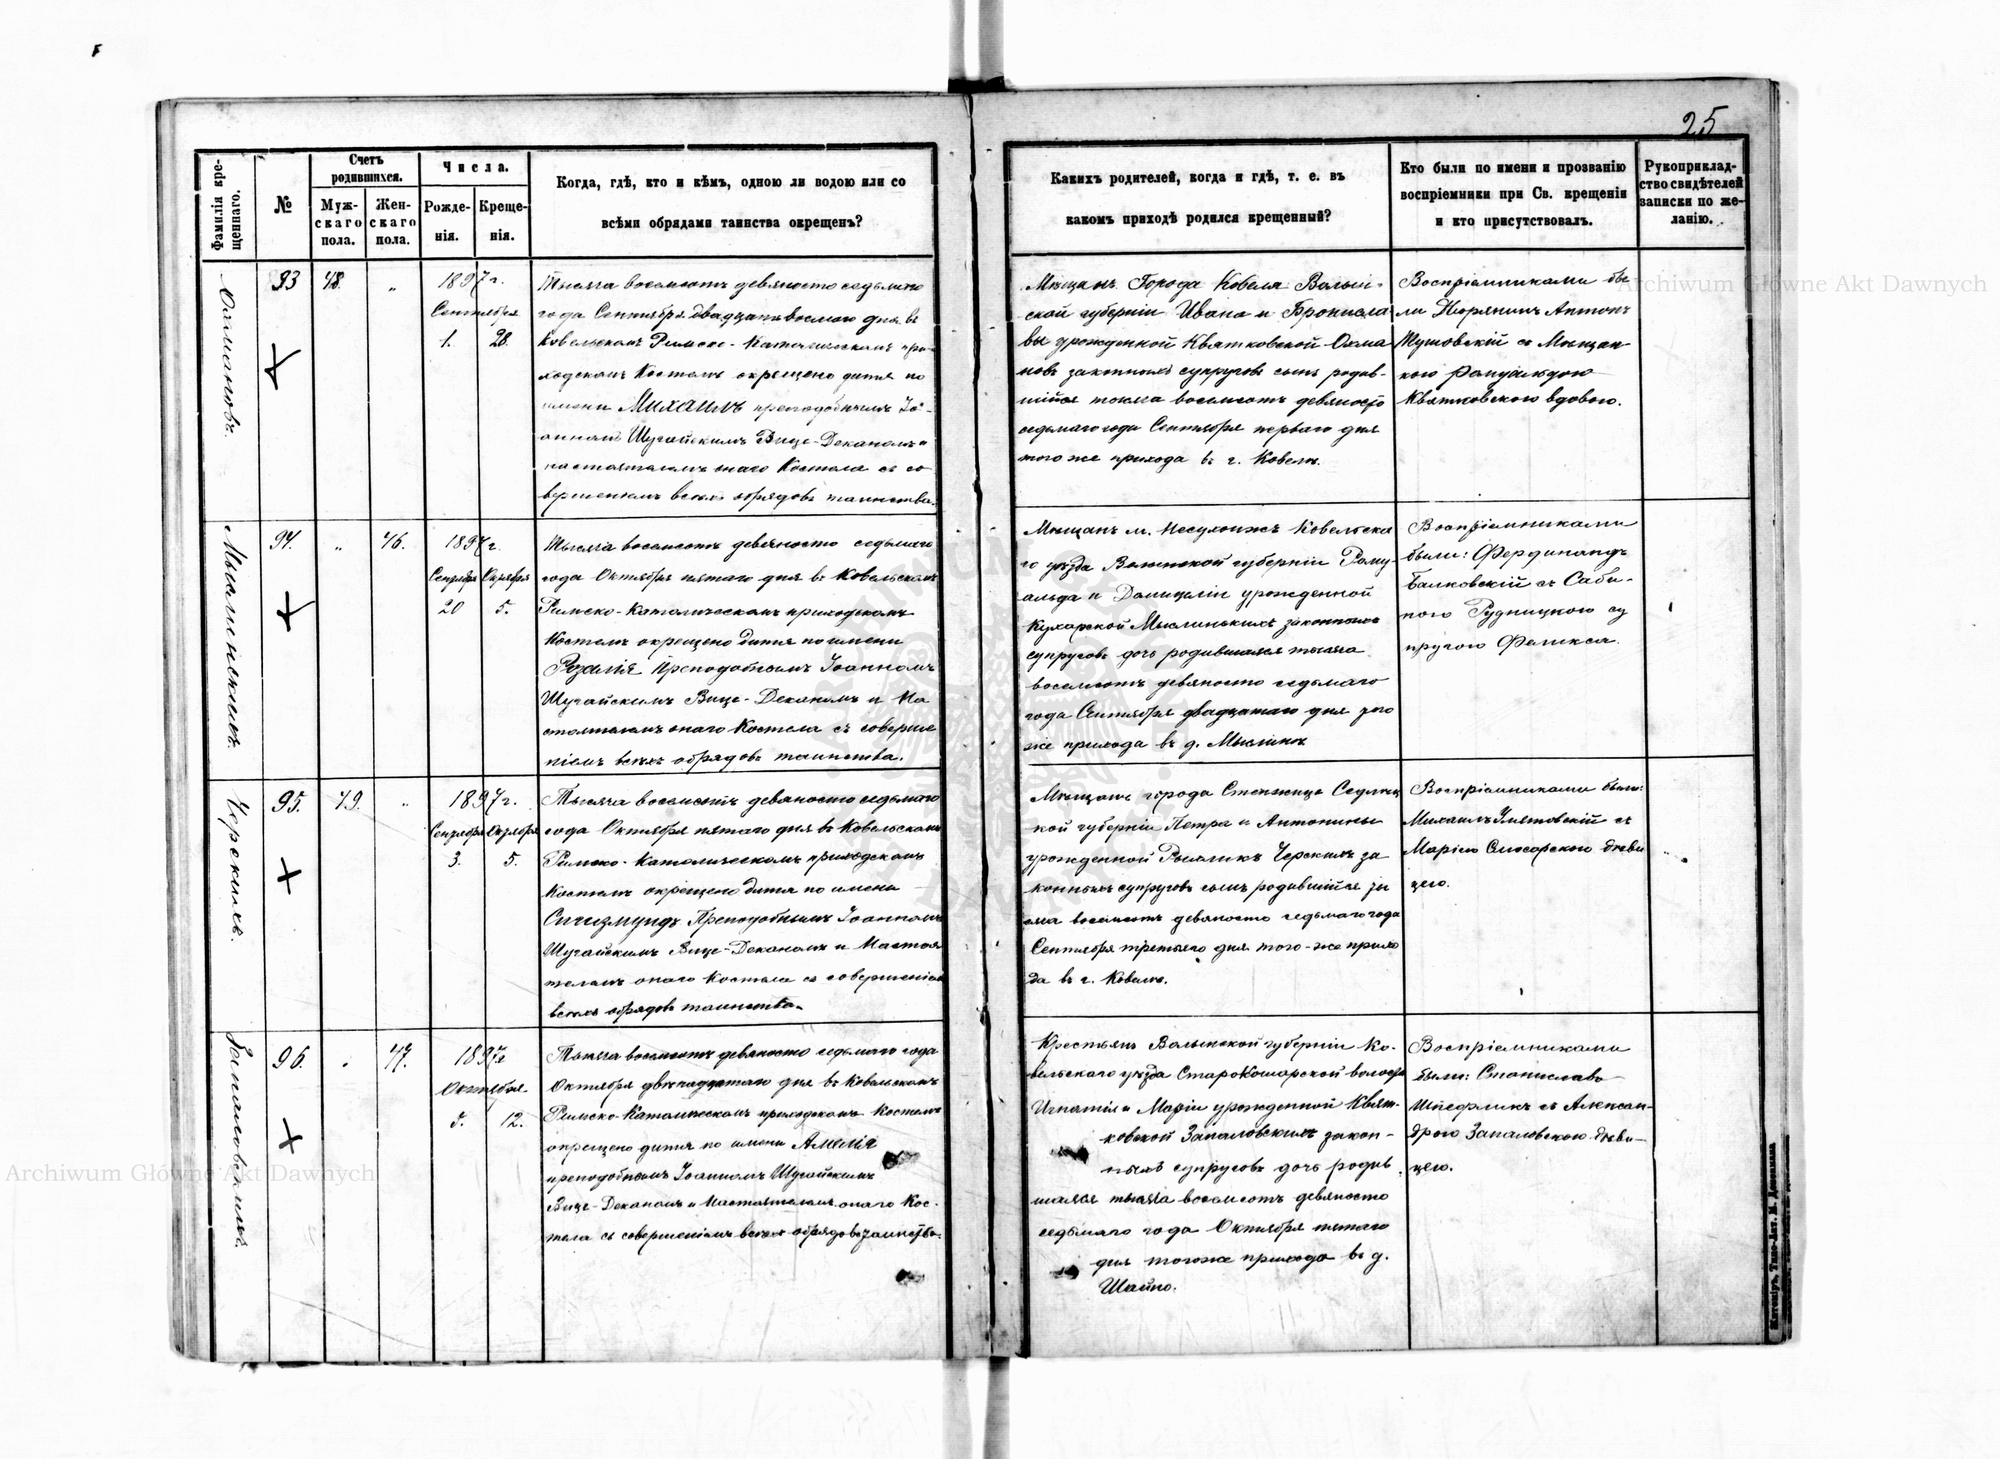 25
Фамилія кре-
щеннаго.
№
Счетъ
родившихся.
Муж-
скаго
пола.
Жен-
скаго
пола.
Числа.
Рожде-
нія.
Креще-
нія.
Когда, гдѣ, кто и кѣмъ, одною ли водою или со
всѣми обрядами таинства окрещенъ?
Какихъ родителей, когда и гдѣ, т. е. въ
какомъ приходѣ родился крещенный?
Кто были по имени и прозванію
воспріемники при Св. крещеніи
и кто присутствовалъ.
Рукоприклад-
ство свидѣтелей
записки по же-
ланію.
93
48.
„
1897 г.
Сентября
1.
28.
Тысяча восемсотъ девяносто седьмого
года Сентября двадцать восмаго дня въ
Ковельскомъ Римско-Католическомъ при-
ходскомъ Костелѣ окрещено дитя по
имени Михаилъ преподобнымъ Іо-
анномъ Шугайскимъ Вице-Деканомъ и
настоятелемъ онаго Костела съ со
вершеніемъ всѣхъ обрядовъ таинства.
Мѣщанъ Города Ковеля Волын-
ской губерніи Ивана и Бронисла-
вы урожденной Квятковской Охма
новъ законныхъ супруговъ сынъ родив-
шійся тысяча восемсотъ девяносто
седьмаго года Сентября перваго дня
того же прихода въ г. Ковелѣ.
Воспріемниками бы-
ли Дворянинъ Антонъ
съ Мѣщан-
кою Ромуальдою
Квятковскою вдовою.
Мыслинскихъ.
94.
„
46.
1897 г.
Сентября
Октября
20
5.
Тысяча восемсотъ девяносто седьмаго
года Октября пятаго дня въ Ковельскомъ
Римско-Католическомъ приходскомъ
Костелѣ окрещено дитя по имени
Розалія Преподобнымъ Іоанномъ
Шугайскимъ Вице-Деканомъ и На
стоятелемъ онаго Костела съ соверше
ніемъ всѣхъ обрядовъ таинства.
Мѣщанъ м. Несухоижъ Ковельска
го уѣзда Волынской губерніи Рому-
альда и Домицеліи урожденной
Кухарской Мыслинскихъ законныхъ
супруговъ дочь родившаяся тысяча
восемсотъ девяносто седьмаго
года Сентября двадцатаго дня того
же прихода въ д. Мыслинѣ
Воспріемниками
были: Фердинандъ
Балковскій съ Саби-
ною Рудницкою су
пругою Феликса.
Черскихъ.
95.
49.
„
1897 г.
Сентября
Октября
3.
5.
Тысяча восемсотъ девяносто седьмаго
года Октября пятаго дня въ Ковельскомъ
Римско-Католическомъ приходскомъ
Костелѣ окрещено дитя по имени
Сигизмундъ Преподобнымъ Іоанномъ
Шугайскимъ Вице-Деканомъ и Настоя
телемъ онаго Костела съ совершеніемъ
всѣхъ обрядовъ таинства.
Мѣщанъ города Стенжица Седлец
кой губерніи Петра и Антонины
урожденной Черскихъ за
конныхъ супруговъ сынъ родившійся ты
сяча восемсотъ девяносто седьмаго года
Сентября третьяго дня того-же прихо
да въ г. Ковелѣ.
Воспріемниками были:
Михаилъ съ
Маріею Слюсарскою дѣви
цею.
Запаловскихъ.
96.
„
47.
1897 г
Октября
5.
12.
Тысяча восемсотъ девяносто седьмаго года
Октября двѣнадцатаго дня въ Ковельскомъ
Римско-Католическомъ приходскомъ Костелѣ
окрещено дитя по имени Амелія
преподобнымъ Іоанномъ Шугайскимъ
Вице-Деканомъ и Настоятелемъ онаго Кос-
тела съ совершеніемъ всѣхъ обрядовъ таинства.
Крестьянъ Волынской губерніи Ко-
вельскаго уѣзда Старокошарской волости
Игнатія и Маріи урожденной Квят-
ковской Запаловскихъ закон-
ныхъ супруговъ дочь родив
шаяся тысяча восемсотъ девяносто
седьмаго года Октября пятаго
дня тогоже прихода въ д.
Шайно.
Воспріемниками
были: Станиславъ
съ Алексан-
дрою Запаловскою дѣви-
цею.
Archiwum Główne Akt Dawnych
Archiwum Główne Akt Dawnych